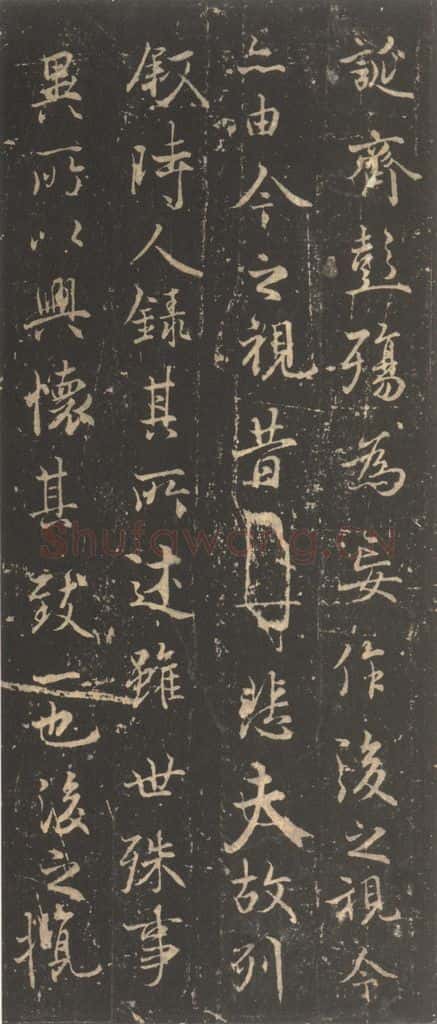 誕齊彭殤為妄作後之視今
亦由今之視昔悲夫故列
叙時人錄其所述雖世殊事
異所以興懷其致一也後之攬
Shufawang.cn